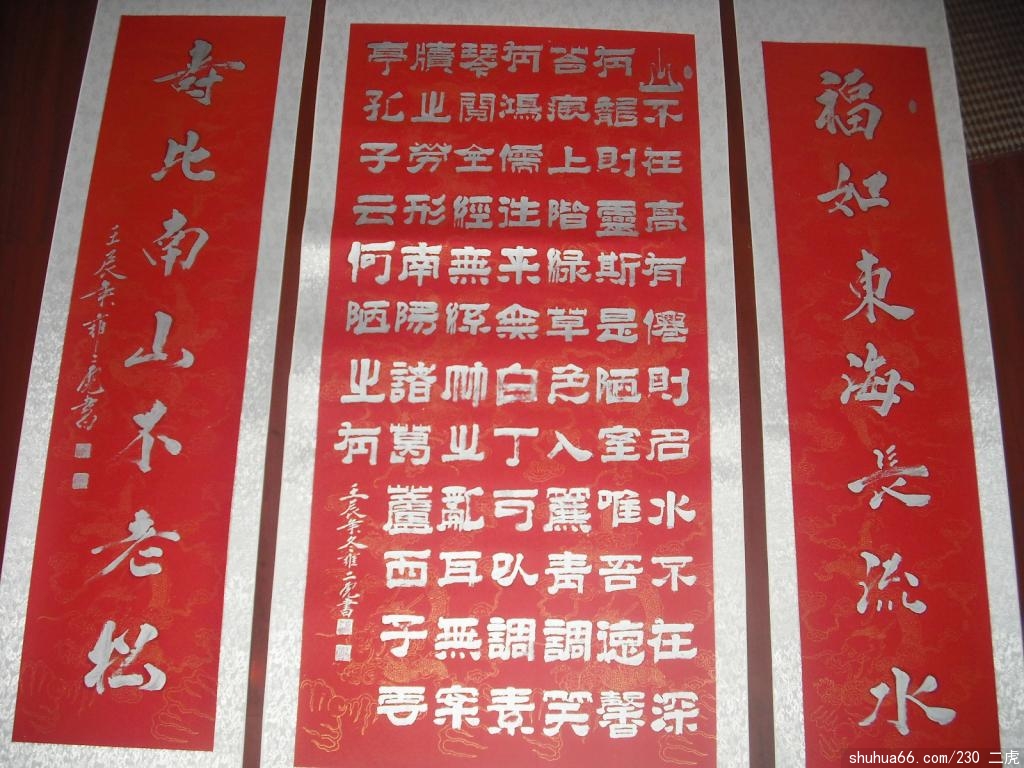 福如東海長流水
山不在高有僊則名水不在深
有龍則靈斯是陋室唯吾德馨
苔痕上階緑草色入簾青調笑
有鴻儒往来無白丁可以調素
琴閱金經無絲竹之亂耳無案
牘之勞形南陽諸葛蘆西子
亭孔子云何陋之有
壬辰年冬雒二虎書
寿比南山不老松
壬辰年雒二虎書
shuhua66.com/230 二虎